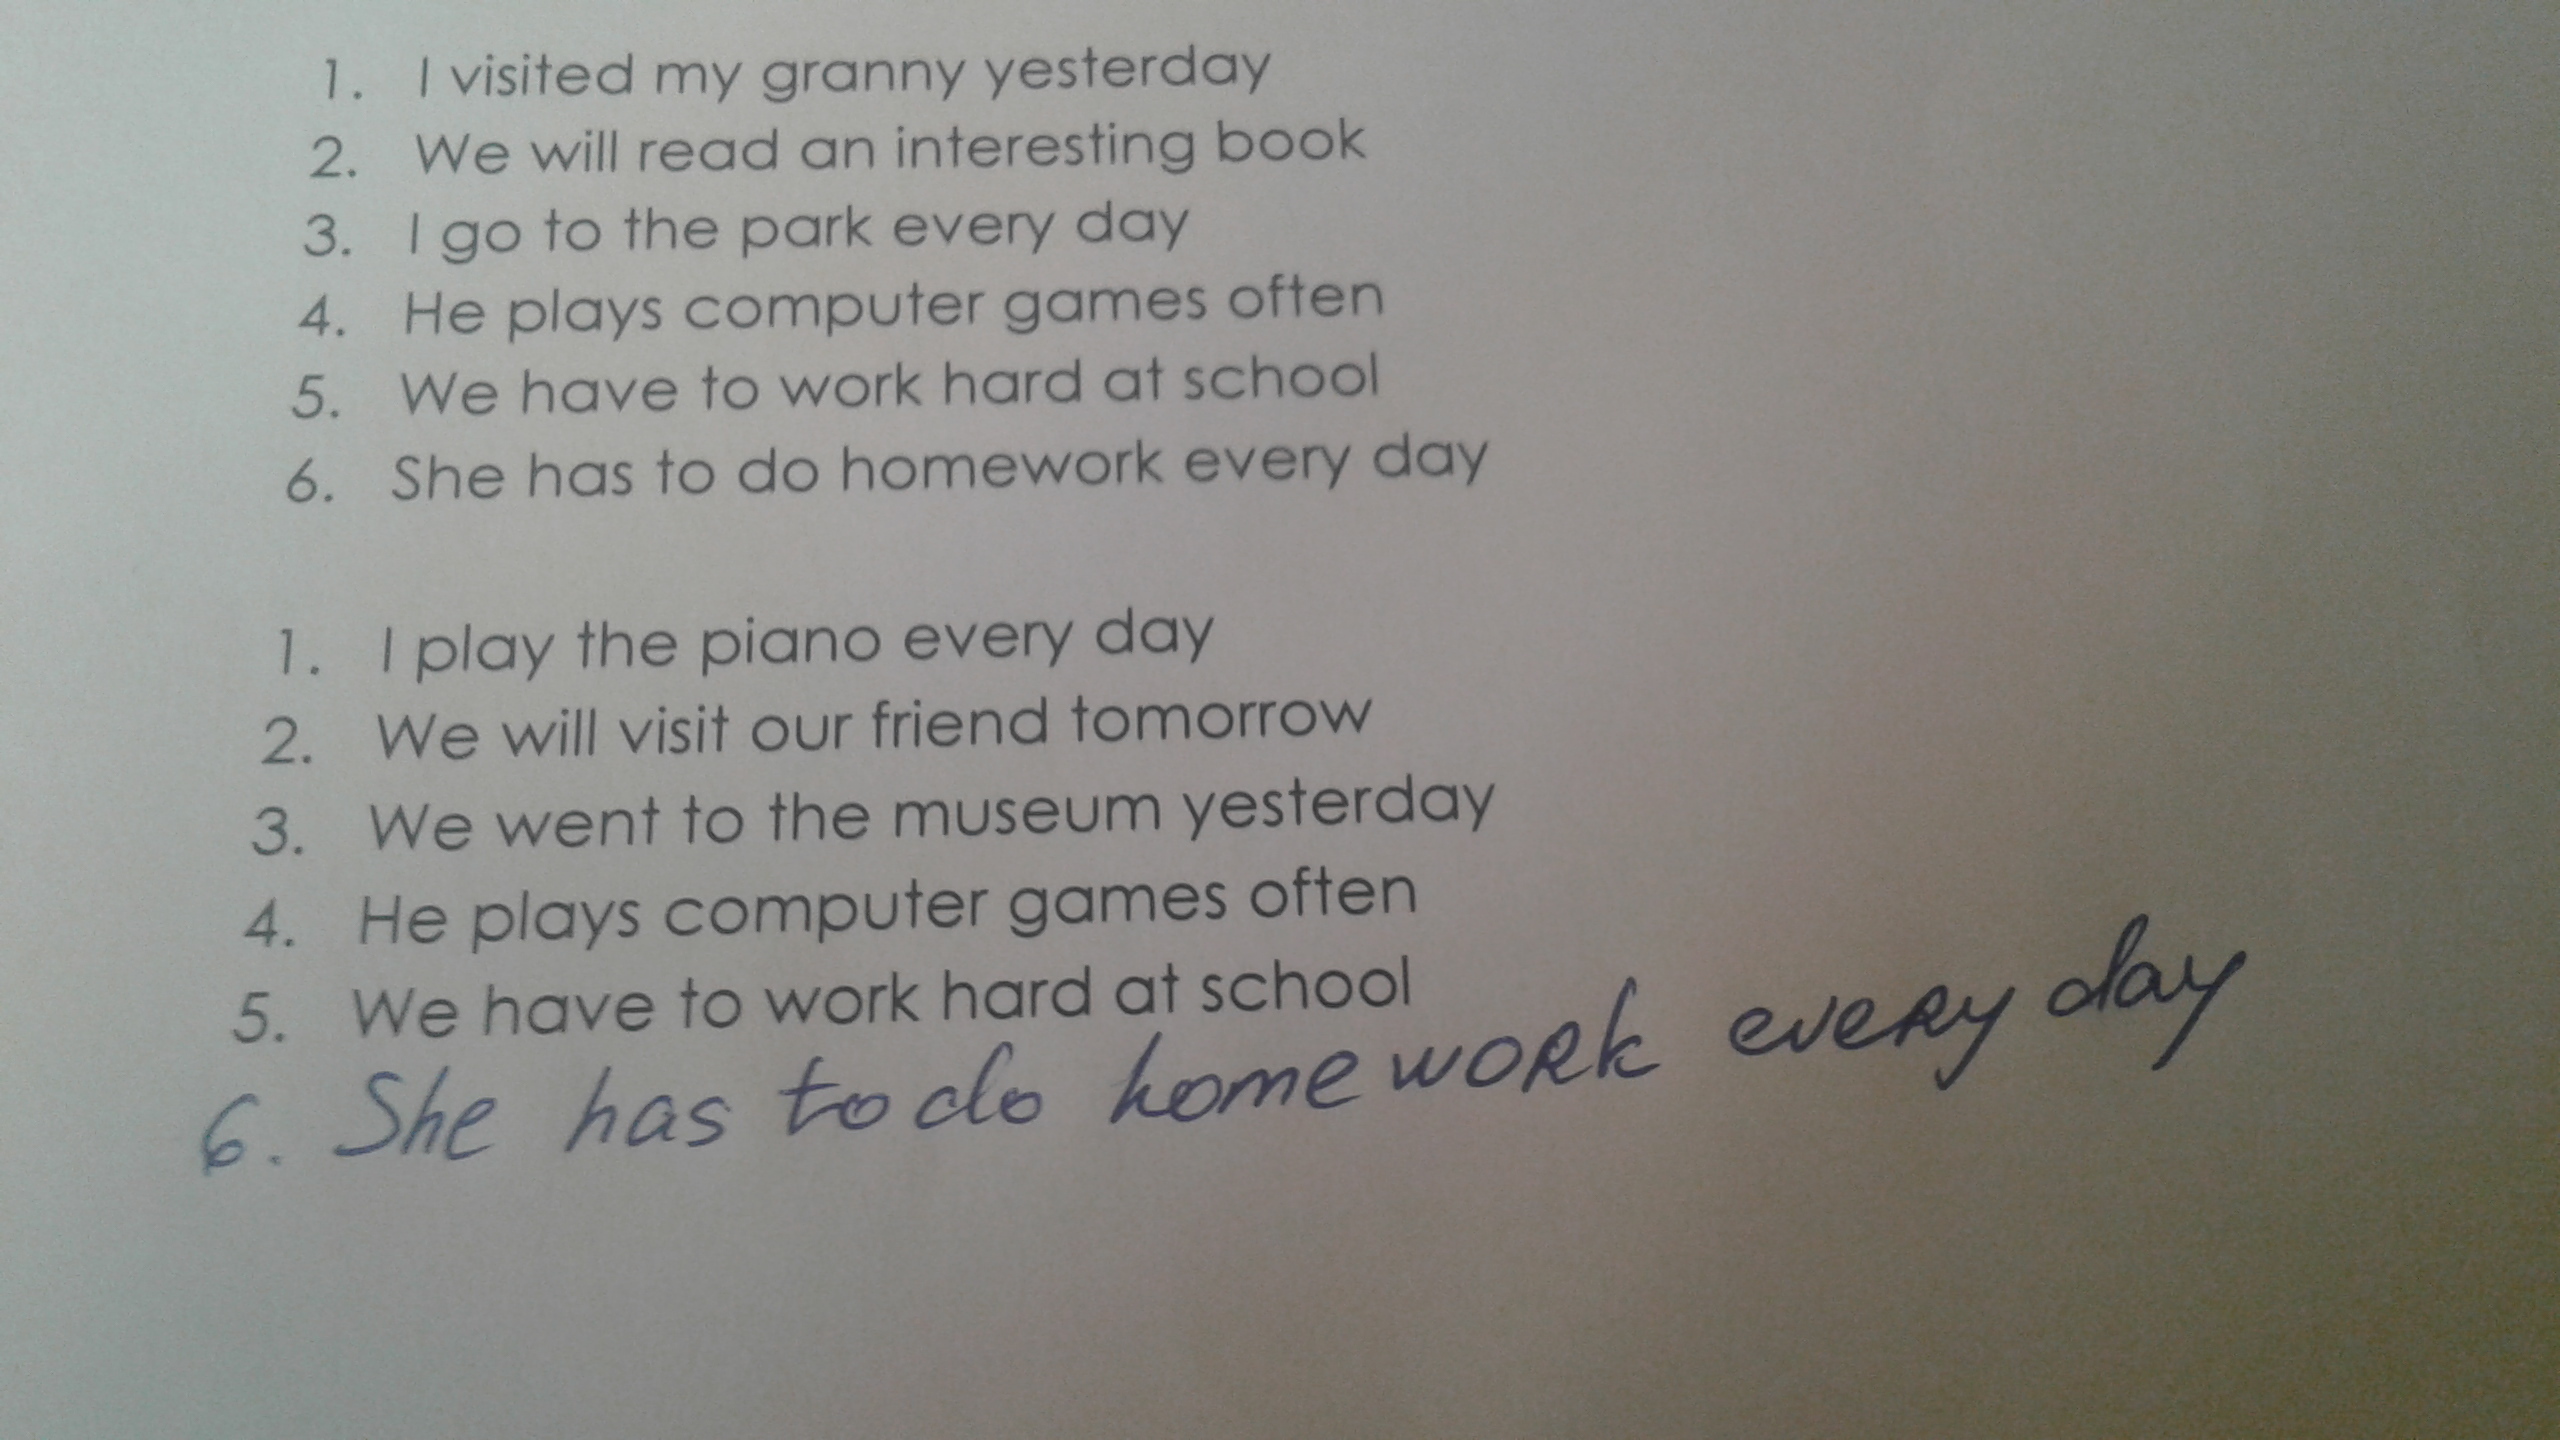 1. I visited my granny yesterday
2. We will read an interesting book
3. I go to the park every day
4. He plays computer games often
5. We have to work hard at school
6. She has to do homework every day
1. I play the piano every day
2. We will visit our friend tomorrow
3. We went to the museum yesterday
4. He plays computer games often
5. We have to work hard at school
6. She has to do homework every day